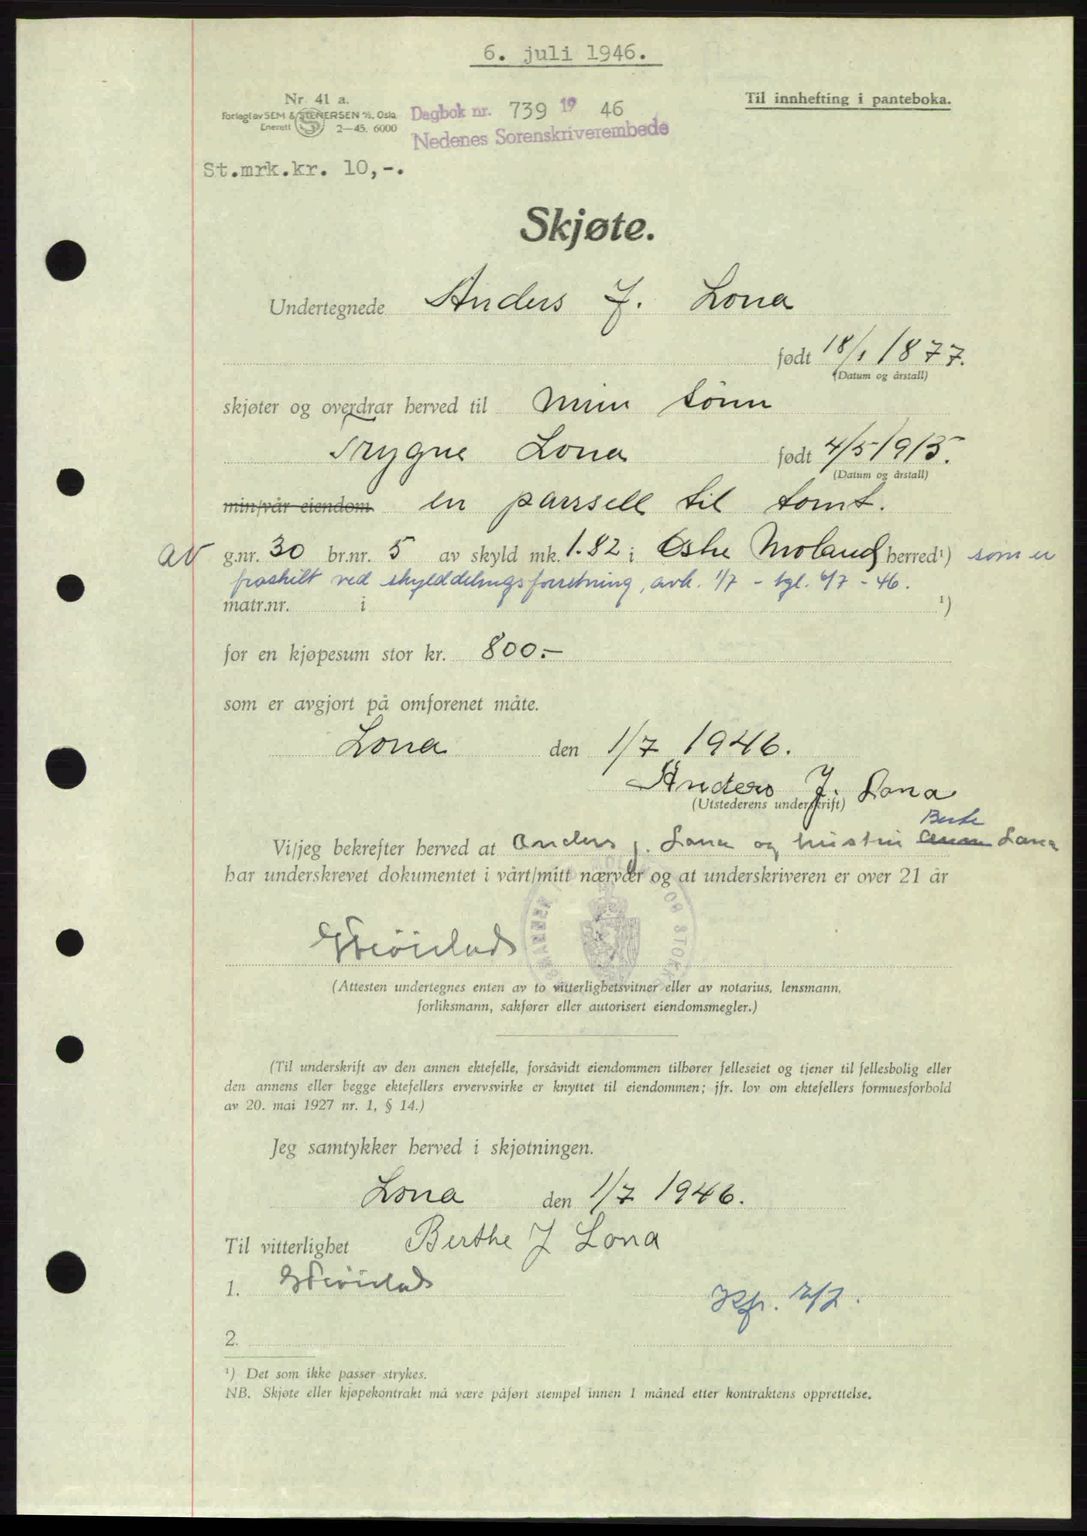 6. juli 1946.
Nr. 41 a.
Forlagt av SEM & STENERSEN A/S, Oslo
Enerett 2—45. 6000
Dagbok nr. 739 19 46
Nedenes Sorenskriverembede
Til innhefting i panteboka.
St.mrk.kr. 10,-.
Skjøte.
Undertegnede Anders J. Lona
født 18/1 1877.
(Datum og årstall)
skjøter og overdrar herved til min sønn
Trygve Lona født 4/5 1915.
(Datum og årstall)
min/vår eiendom en parsell til tomt.
av g.nr. 30 br.nr. 5 av skyld mk. 1.82 i Østre Moland herred¹) som er
fraskilt ved skylddelingsforretning, avh. 1/7 - tgl. 6/7 - 46.
matr.nr. i ¹)
for en kjøpesum stor kr. 800.-
som er avgjort på omforenet måte.
Lona den 1/7 1946.
Anders J. Lona
(Utstederens underskrift)
Berthe
Vi/jeg bekrefter herved at Anders J. Lona og hustru Lona
har underskrevet dokumentet i vårt/mitt nærvær og at underskriveren er over 21 år
(Attesten undertegnes enten av to vitterlighetsvitner eller av notarius, lensmann,
forliksmann, sakfører eller autorisert eiendomsmegler.)
(Til underskrift av den annen ektefelle, forsåvidt eiendommen tilhører felleseiet og tjener til fellesbolig eller
den annens eller begge ektefellers ervervsvirke er knyttet til eiendommen; jfr. lov om ektefellers formuesforhold
av 20. mai 1927 nr. 1, § 14.)
Jeg samtykker herved i skjøtningen.
Lona den 1/7 1946.
Til vitterlighet Berthe J Lona
1.
2.
¹) Det som ikke passer strykes.
NB. Skjøte eller kjøpekontrakt må være påført stempel innen 1 måned etter kontraktens opprettelse.